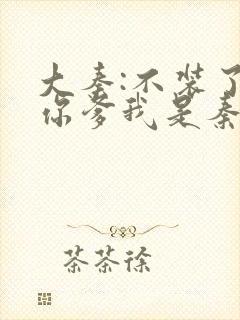 大秦:不装了
你爹我是秦
茶茶徐